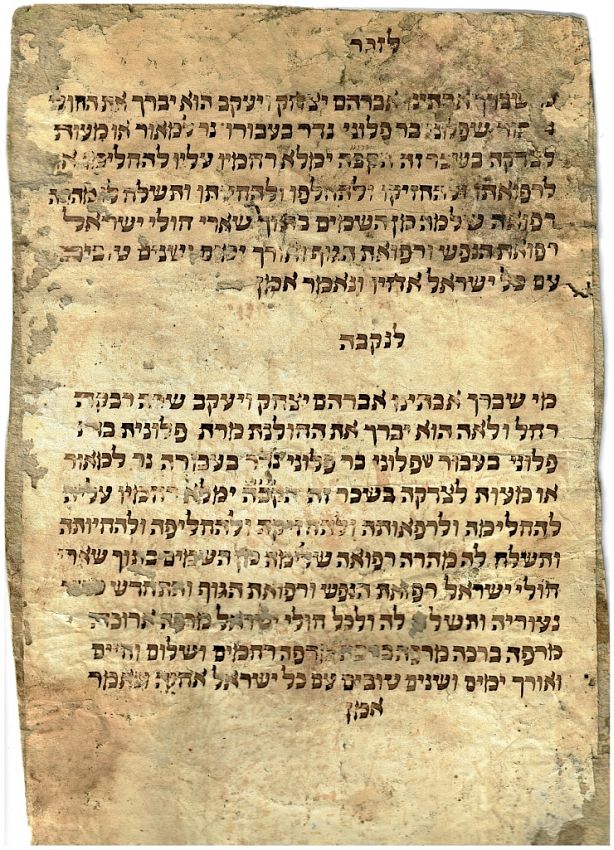 לזכר
שבירך אבותינו אברהם יצחק ויעקב הוא יברך את החולי
שפלוני בר פלוני נדר בעבורו נר למאור או מעות
לצדקה בשכר זה הקבה ימלא רחמין עליו להחלימו
לרפואתו ולהחזיקו ולהחליפו ולהחיותו ותשלח לו מהרה
רפואה שלמה מן השמים בתוך שארי חולי ישראל
רפואת הנפש ורפואת הגוף ואורך ימים ושנים
עם כל ישראל אחיו ונאמר אמן
לנקבה
מי שברך אבותינו אברהם יצחק ויעקב שרה רבקה
רחל ולאה הוא יברך את החולנת מרת פלונית בת
פלוני בעבור שפלוני בר פלוני נדר בעבורה נר למאור
או מעות לצדקה בשכר זה הקבה ימלא רחמין עליה
להחלימה ולרפאותה ולהחזיקה ולהחליפה ולהחיותה
ותשלח לה מהרה רפואה שלימה מן השמים בתוך שארי
חולי ישראל רפואת הנפש ורפואת הגוף ותתחדש
נעוריה ותשלח לה ולכל חולי ישראל מרפה ארוכה
מרפה ברכה מרפה מרפה רחמים ושלום וחיים
ואורך ימים ושנים טובים עם כל ישראל אחיה ונאמר
אמן